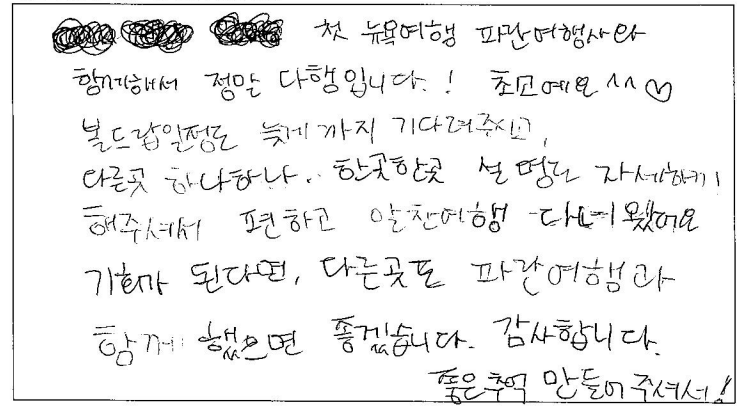 첫 뉴욕여행 파란여행사와
함께해서 정말 다행입니다.! 최고예요^^♡
볼드랍일정도 늦게까지 기다려주시고,
다른곳 하나하나.. 한곳한곳 설명도 자세하게
해주셔서 편하고 알찬여행 다녀왔어요
기회가 된다면, 다른곳도 파란여행과
함께 했으면 좋겠습니다. 감사합니다.
좋은추억 만들어주셔서!